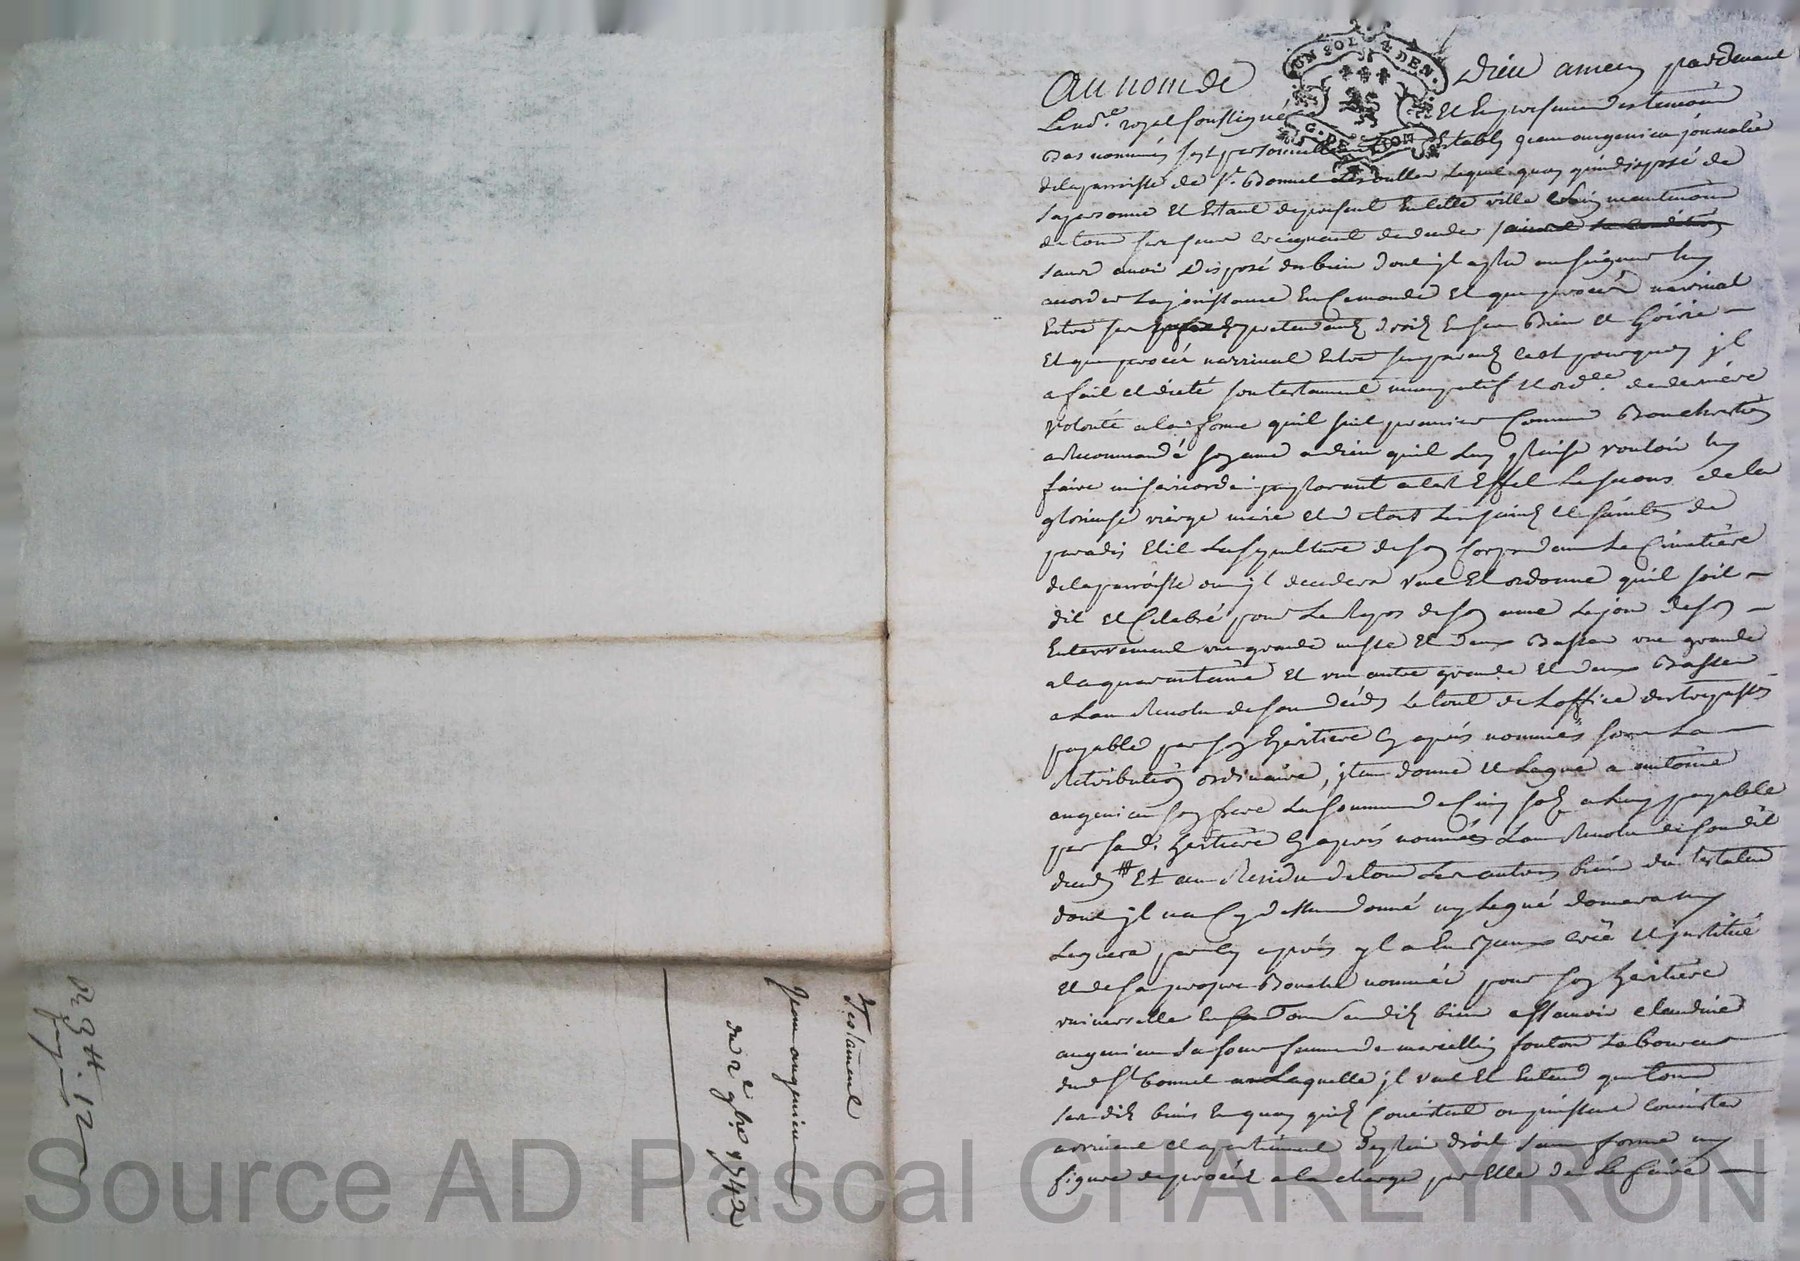 Au nom de Dieu amen pardevant
Le nore. royal soussigné et en presence des temoins
Bas nommés fut personnellement Estably Jean augenieu journalier
de la parroisse de St. Bonnet lequel quoy qu'indisposé de
sa personne et Estant de present en cette ville
de tous ses sens craignant de deceder
sans avoir disposé des biens dont il a plu au seigneur luy
accorder la jouissance En Ce monde et que procès narrivat
Entre ses pretendants droits En ses Biens et hoirie
Et que procès narrivat Entre ses parents cest pourquoy jl
a fait et dicté son testament nuncupatif et ordce. de derniere
volonté a la forme quil suit premier Comme Bon chretien
a recommandé son ame a dieu quil luy plaise vouloir luy
faire misericorde implorant a cest Effet Le secours de la
glorieuse vierge marie et de tous les saints et saintes de
paradis Elit La sepulture de son corps dans Le Cimetiere
de la parroisse ou jl decedera veut Et ordonne quil soit
dit et Celebré pour Le Repos de son ame Le jour de son
Enterrement une grande messe Et deux Basses une grande
a la quarantaine et une autre grande Et deux Basses
a Lan Revolu de son deces Le tout de Loffice des trepassés
payable par son heritiere Cy après nommée sous La
Retribution ordinaire, jtem donne et Legue a antoine
augenieu son frere La somme de Cinq sols a luy payable
par sad. heritiere Cy après nommée Lan Revolu de son dit
deces Et au Residu de tous Les autres biens du testateur
dont jl na Cy dessus donné ny Legué donnera ny
Leguera par Cy après jl a Creé et jnstitué
et de sa propre Bouche nommée pour son heritiere
universelle En Tous Sesdits biens assavoir claudine
augenieu sa sœur femme de marcellin fouton Laboureur
dud St bonnet a Laquelle jl veut Et Entend que tous
sesdits biens En quoy quils Consistent ou puissent consister
arrivent et apartiennent de plein droit sans forme ny
figure de procès a la charge par Elle de Le faire
Testament
Jean augenieu
du 2e 9bre 1742
Source AD Pascal CHAREYRON